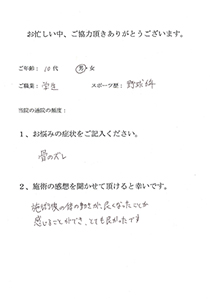 お忙しい中、ご協力頂きありがとうございます。
ご年齢： 10代 男・女
ご職業： 学生 スポーツ歴： 野球
当院の通院の頻度：
1、お悩みの症状をご記入ください。
骨のズレ
2、施術の感想を聞かせて頂けると幸いです。
施術後の体の動きが、良くなったことが
感じることができ、とても良かったです